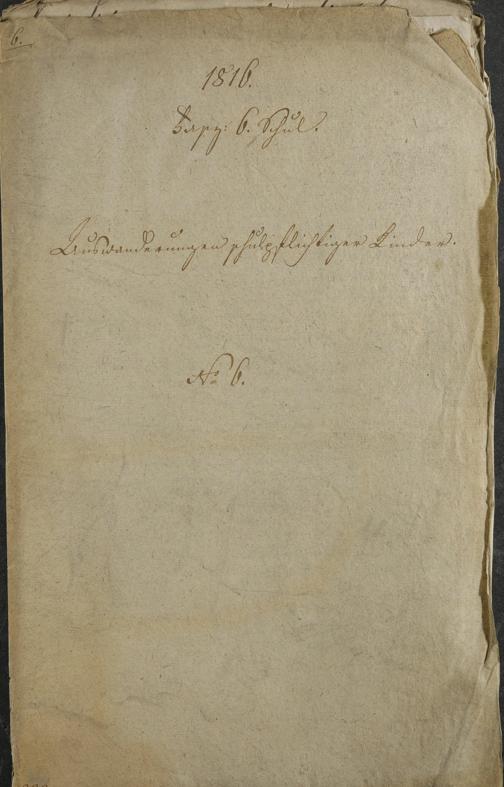 6.
1816.
6. Schul.
Auswanderungen schulpflichtiger Kinder.
No 6.